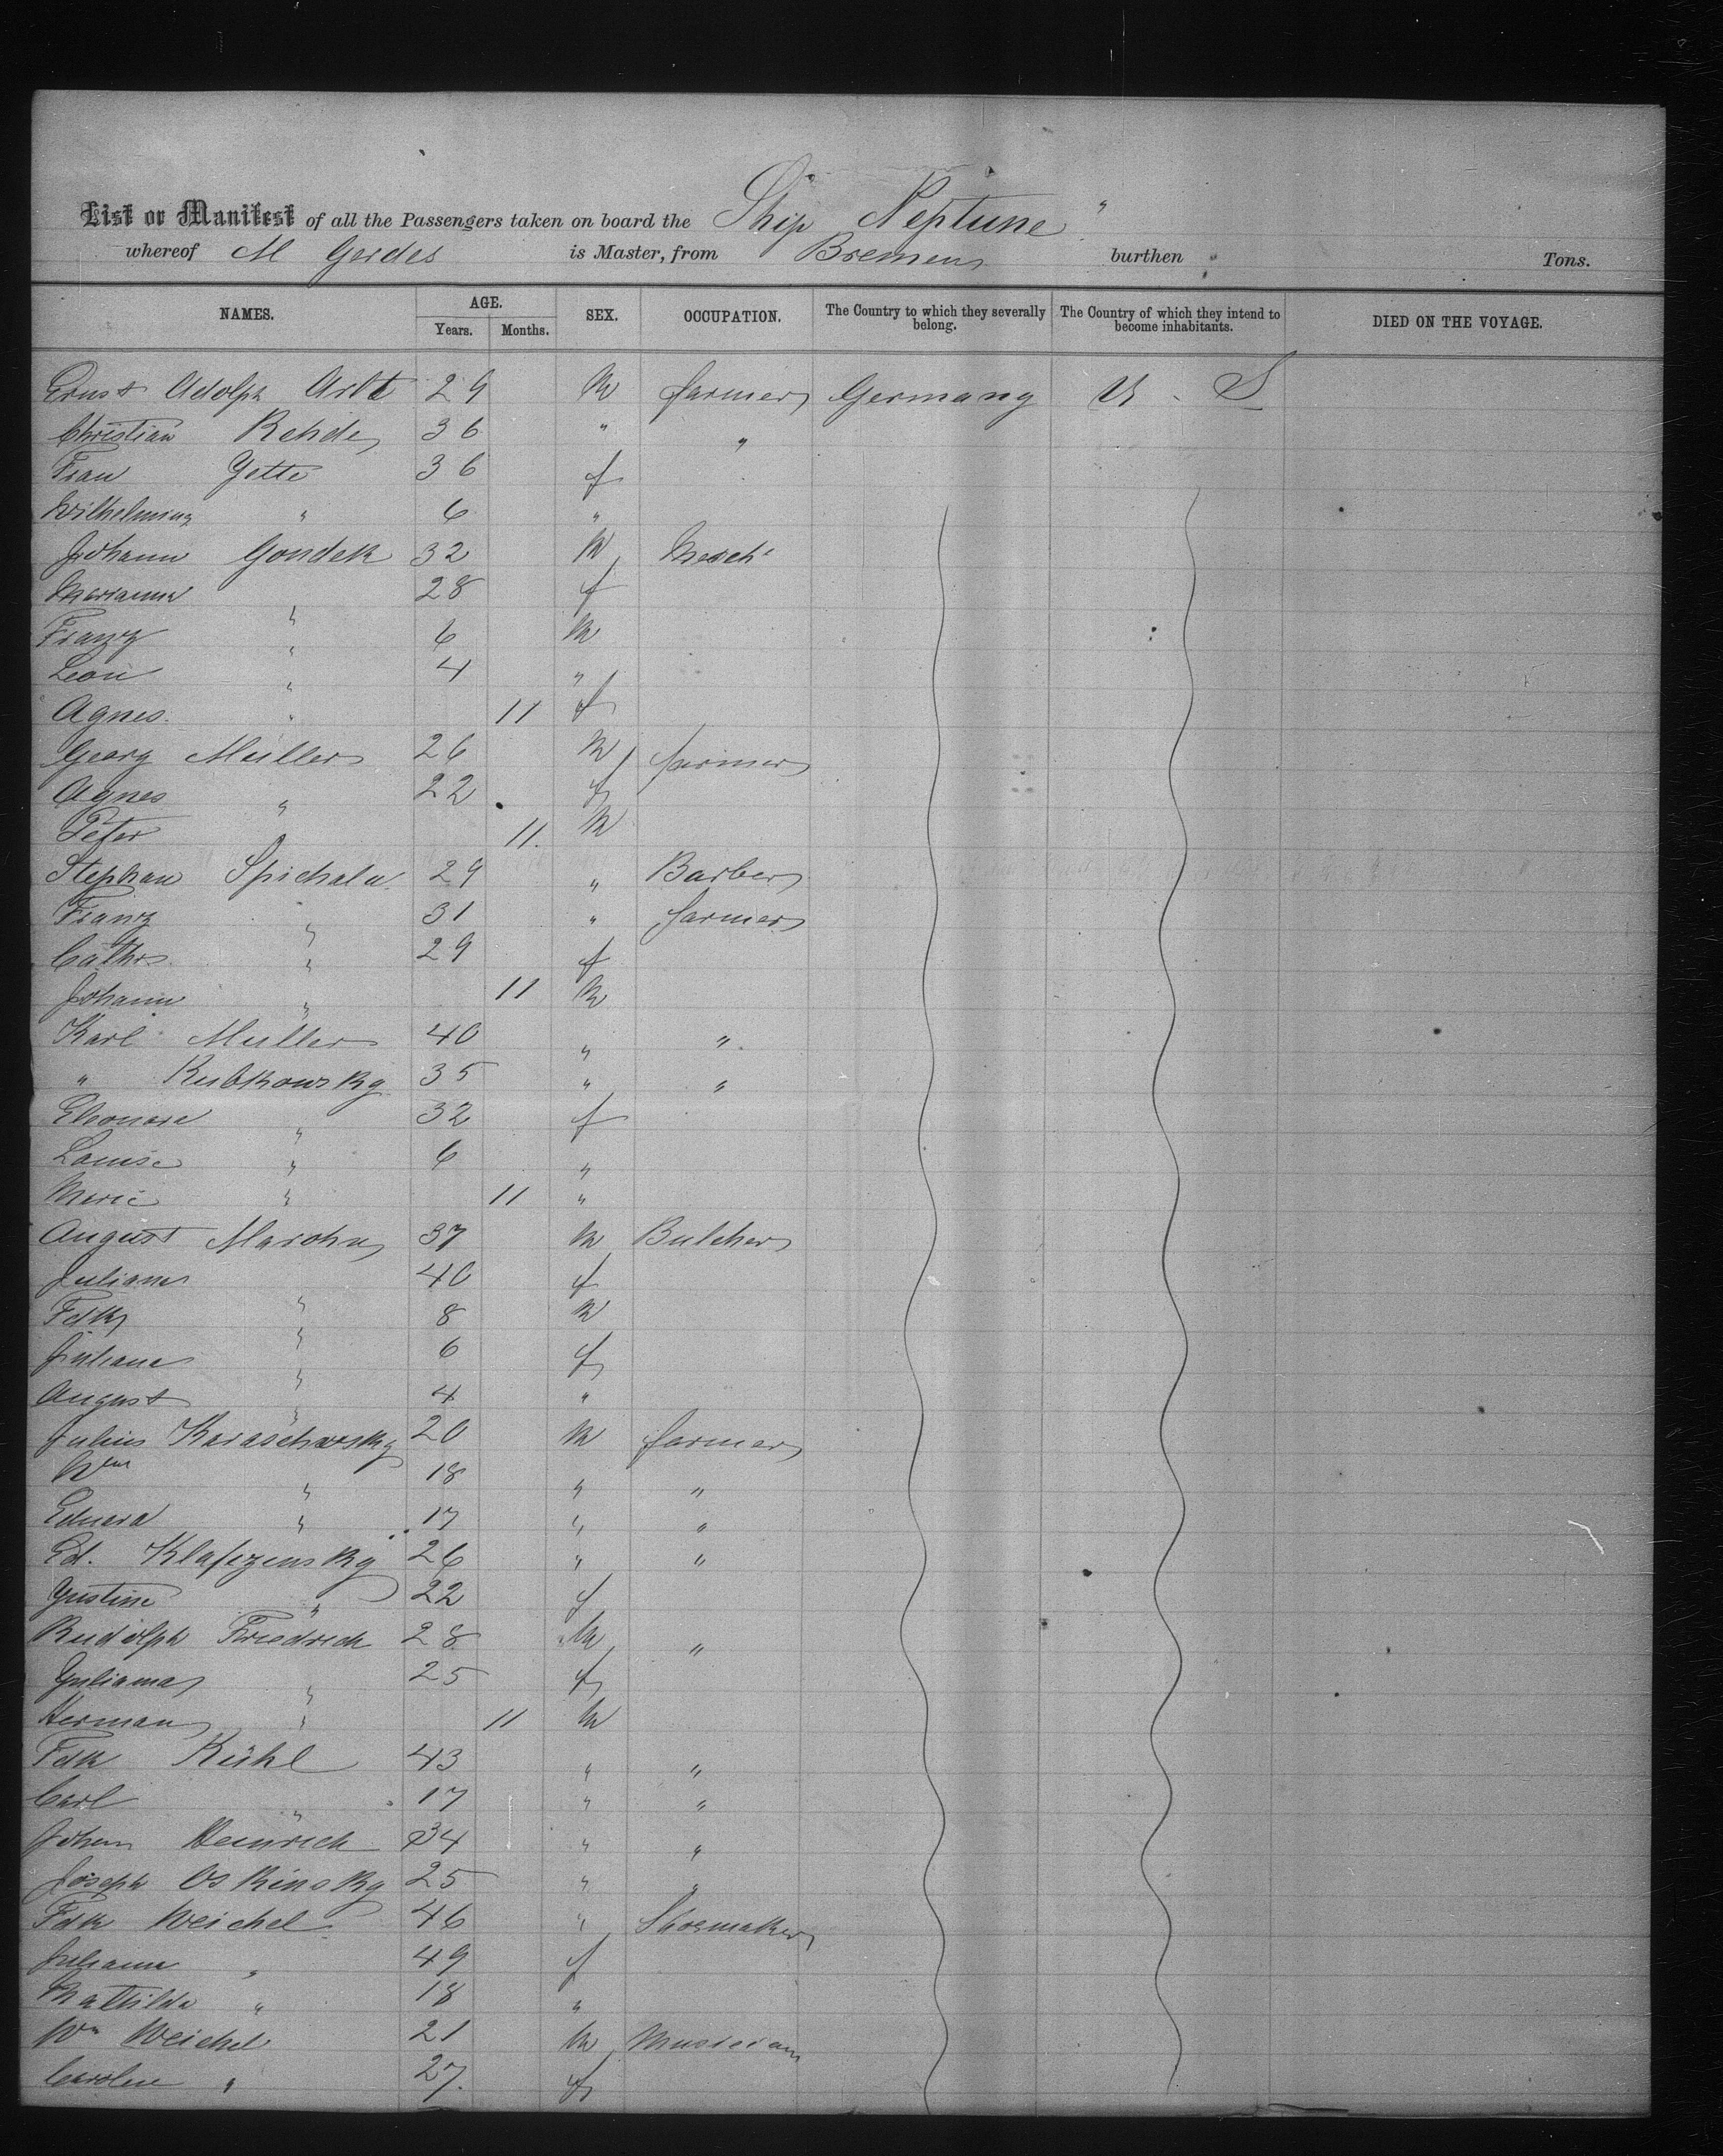 List or Manifest of all the Passengers taken on board the Ship Neptune "
whereof M Gerdes is Master, from Bremen burthen Tons.
NAMES. AGE. Years. Months. SEX. OCCUPATION. The Country to which they severally belong. The Country of which they intend to become inhabitants. DIED ON THE VOYAGE.
Ernst Adolph Arlt 29 M farmer Germany U. S
Christian Rehde 36 " "
Frau Yette 36 f
Wilhelmina " 6 "
Johann Gondek 32 M Mech
Marianna " 28 f
Franz " 6 M
Leon " 4 "
Agnes " 11 f
Georg Muller 26 M farmer
Agnes " 22 f
Peter " 11 M
Stephan Spichala 29 " Barber
Franz " 31 " farmer
Cathr " 29 f
Johann " 11 M
Karl Muller 40 " "
" Rubkowsky 35 " "
Elonore " 32 f
Louise " 6 "
Marie " 11 "
August Marohn 37 M Butcher
Juliana " 40 f
Fdk " 8 M
Juliana " 6 f
August " 4 "
Julius Karaschwsky 20 M farmer
Wm " 18 " "
Eduard " 17 " "
Ed. Klafezensky 26 " "
Yustine " 22 f
Rudolph Friedrich 28 M "
Yuliana " 25 f
Herman " 11 M
Fdk Kühl 43 " "
Carl " 17 " "
Johan Heinrich 34 " "
Joseph Oskinsky 25 " "
Fdk Weichel 46 " Shoemaker
Juliana " 49 f
Mathilda " 18 "
Wm Weichel 21 M Musician
Carolin " 27 f